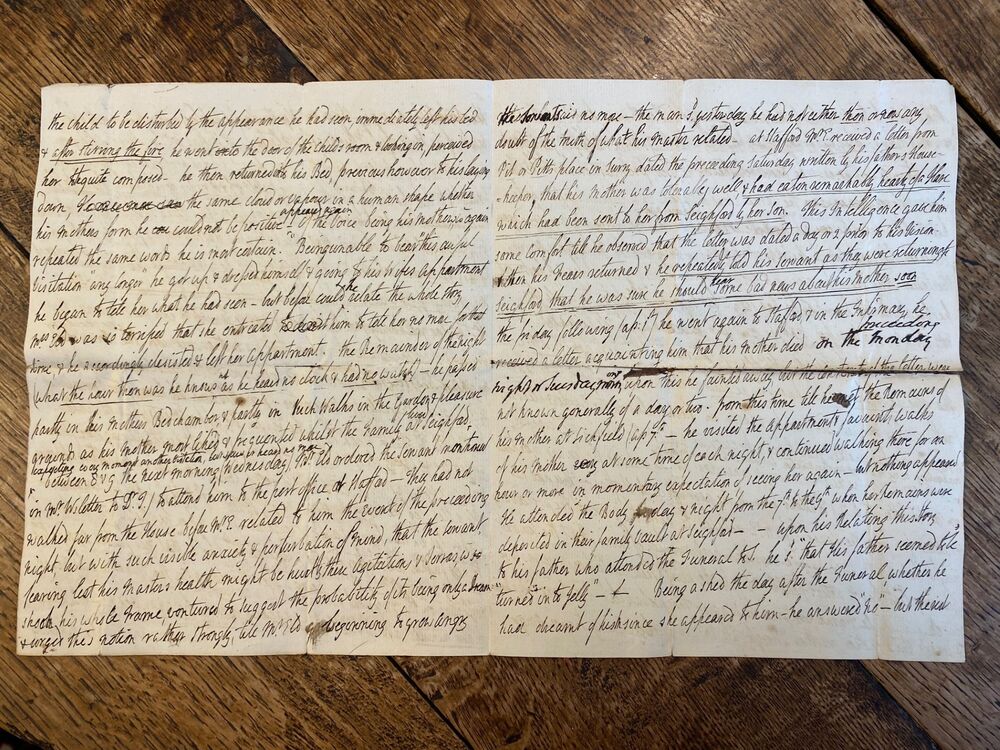 the child to be disturbed by the appearance he had seen immediately left his bed
& after stirring the fire he went to the door of the child's room & looking in, perceived
her quite composed – he then returned to his Bed, previous however to his laying
down, the same cloud or vapour in a human shape whether
his mothers form he could not be positive appear'd again of the Voice being his mothers & again
repeated the same words he is most certain." Being unable to bear this awful
Visitation any longer he got up & dress'd himself & going to his Wife's Appartment
he began to tell her what he had seen – but before he could relate the whole story
Mrs was so terrified that she entreated him to tell her no more for that
time & he accordingly desisted & left her appartment. The Remainder of the night
(what the hour then was he knows not as he heard no clock & had no watch) – he passed
partly in his Mothers Bedchamber & partly in such Walks in the Garden & pleasure
ground as his mother most liked & frequented whilst the Family lived at Seighford
expecting every moment another visitation but saw & heard no more
between 8 & 9 the next morning (Wednesday) Mr E. ordered the Servant mentioned
in Mr W's letter to D. G. to attend him to the post office at Stafford – They had not
walked far from the House before Mr E related to him the event of the preceeding
night but with such visible anxiety & perturbation of mind, that the servant
fearing lest his Masters health might be hurt by these agitation & Sorrow wch
shook his whole frame, ventured to suggest the probability of its being only a Dream
& urged this notion rather strongly till Mr E's beginning to grow angry
the Servant said no more – the man sd yesterday he had not either then or now any
doubt of the truth of what his master related – at Stafford Mr E received a letter from
Pit or Pitts place in Surry dated the preceeding Saturday written by his father's House-
-keeper, that his mother was tolerably well & had eaten remarkably hearty of a Hare
which had been sent to her from Seighford by her Son. This Intelligence gave him
some comfort till he observed that the letter was dated a day or 2 prior to his Vision
& then his Fears returned & he repeatedly told his Servant as they were returning to
Seighford that he was sure he should hear some bad news about his mother soon
the friday following (Ap: 1st) he went again to Stafford & in the Infirmary, he
received a letter acquainting him that his Mother died on the Monday preceeding
night or Tuesday morng upon this he fainted away but the contents of the letter were
not known generally of a day or two. from this time till he met the Remains of
his mother at Lichfield (ap 7th – he visited the Appartments & favourit Walks
of his Mother at some time of each night, & continued walking there for an
hour or more in momentary expectation of seeing her again – but nothing appeared
He attended the Body day & night from the 7th to the 9th when her Remains were
deposited in their family Vault at Seighford – – upon his Relating this story
to his father who attended the Funeral he sd. "that His father seemed to be
"turned into Jelly" – Being asked the day after the Funeral whether he
had dreamt of his since she appeared to him – he answered "no" – but the next